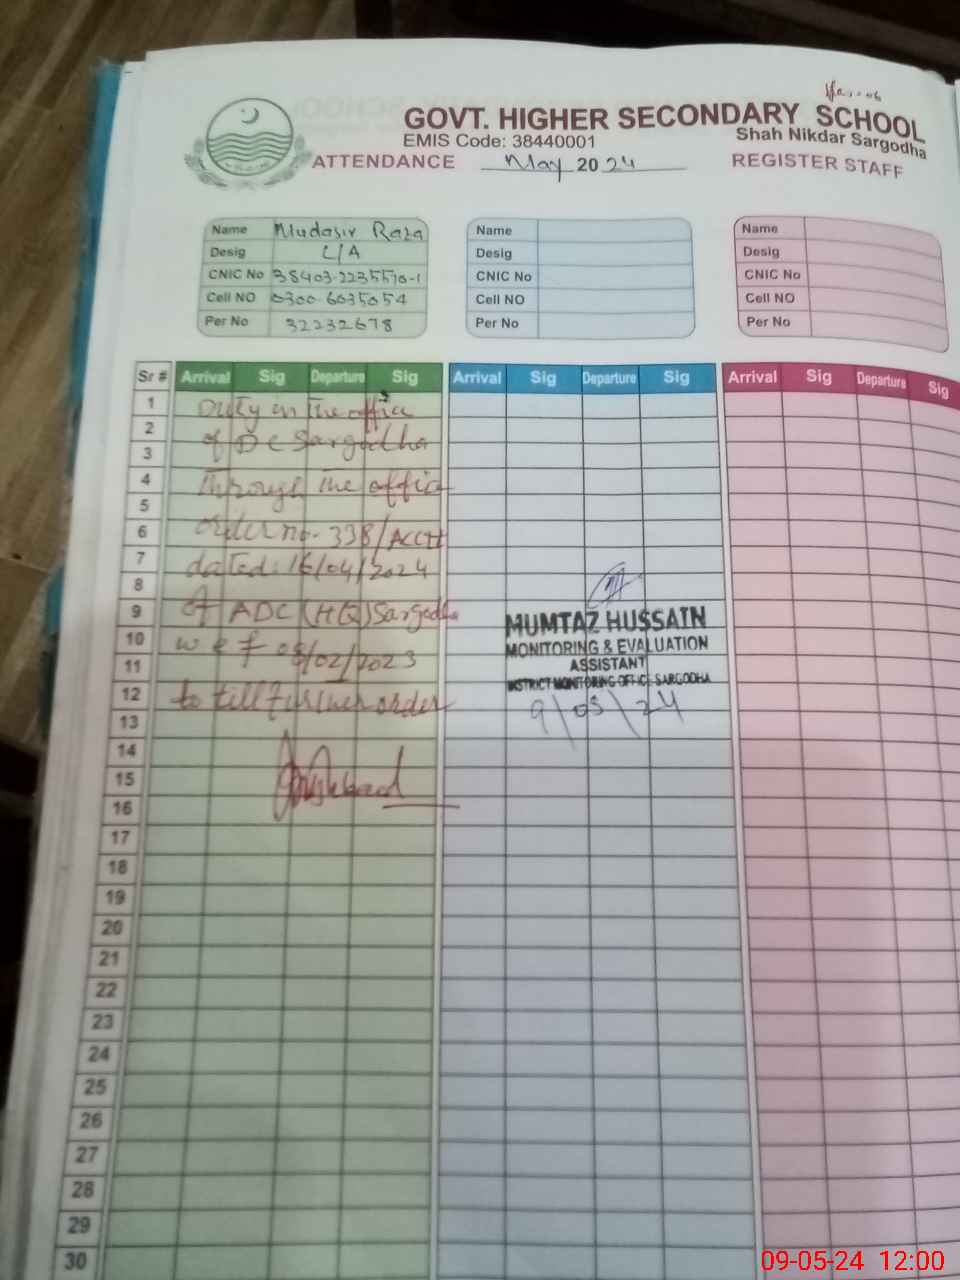 GOVT. HIGHER SECONDARY SCHOOL
EMIS Code: 38440001
Shah Nikdar Sargodha
ATTENDANCE May 2024 REGISTER STAFF
Name Mudasir Raza
Desig L/A
CNIC No 38403-2235570-1
Cell NO 0300-6035054
Per No 32232678
Name
Desig
CNIC No
Cell NO
Per No
Name
Desig
CNIC No
Cell NO
Per No
Sr # Arrival Sig Departure Sig Arrival Sig Departure Sig Arrival Sig Departure Sig
1
2
3
4
5
6
7
8
9
10
11
12
13
14
15
16
17
18
19
20
21
22
23
24
25
26
27
28
29
30
Duty in the office
of DC Sargodha
through the office
order no. 338/ACCH
dated: 16/04/2024
of ADC (HQ) Sargodha
w e f 08/02/2023
to till further order
MUMTAZ HUSSAIN
MONITORING & EVALUATION
ASSISTANT
DISTRICT MONITORING OFFICE SARGODHA
9/05/24
09-05-24 12:00